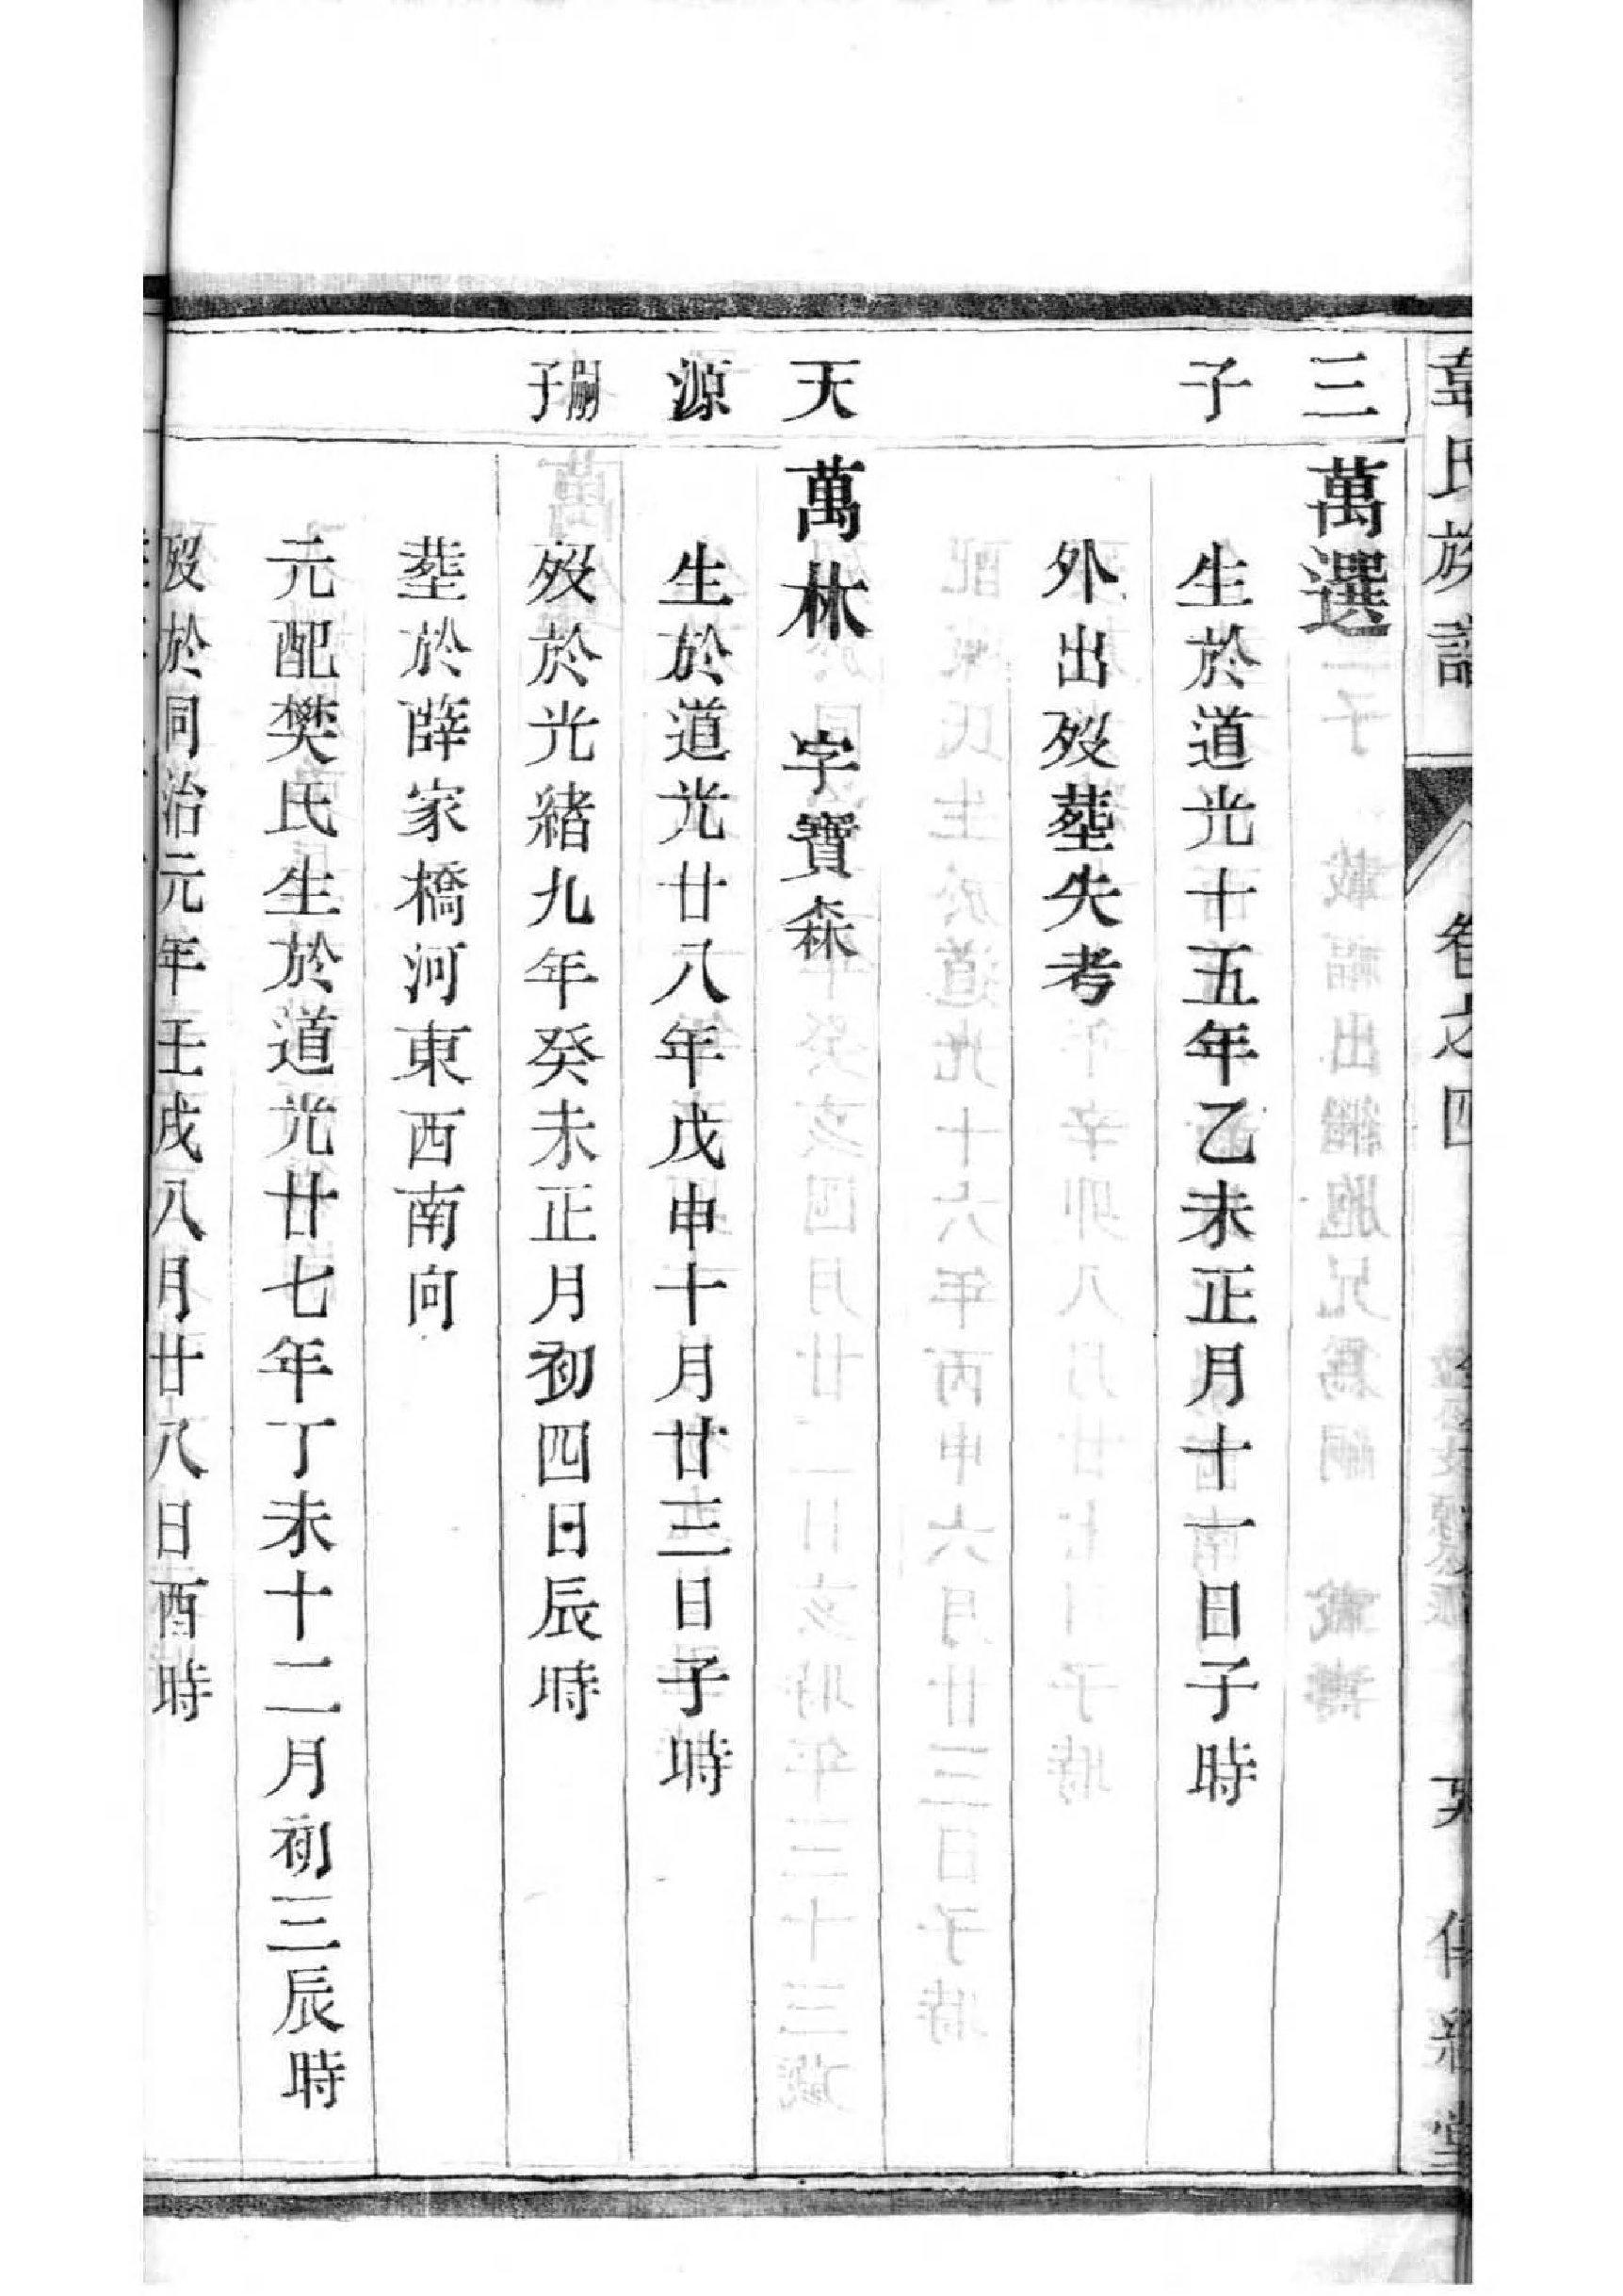 氏族譜 卷之四
三子
萬選
生於道光十五年乙未正月十一日子時
外出歿塟失考
天源嗣子
萬林 字寶森
生於道光廿八年戊申十月廿三日子時
歿於光緒九年癸未正月初四日辰時
塟於薛家橋河東西南向
元配樊氏生於道光廿七年丁未十二月初三辰時
歿於同治元年壬戌八月廿八日酉時